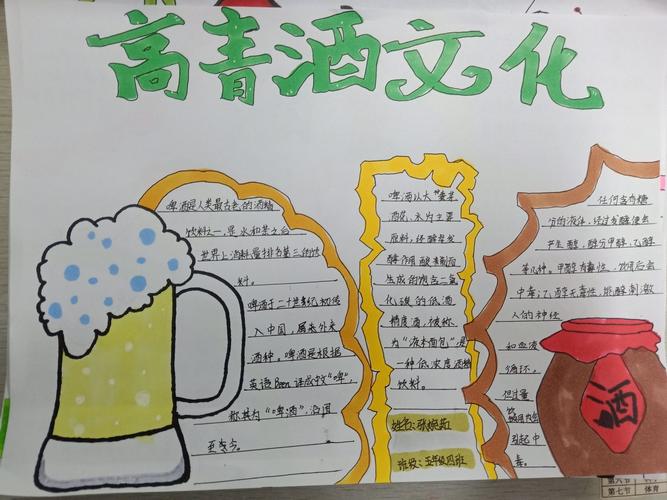 高青酒文化
啤酒是人类最古老的酒精
饮料之一,是水和茶之后
世界上消耗量排名第三的饮
料。
啤酒于二十世纪初传
入中国,属类外来
酒种。啤酒是根据
英语Beer译成中文"啤",
称其为"啤酒"沿用
至今。
啤酒以大麦芽
酒花,水为主要
原料,经酵母发
酵作用
的低酒
精度酒,被称
为"液体面包",是
一种低浓度酒精
饮料。
姓名:张
班级:五年级四班
任何含有糖
分的液体,经过发酵便会
产生醇,醇分甲醇,乙醇
等几种。甲醇有毒性,饮用后会
中毒;乙醇无毒性,能 刺激
人的神经
和血液
循环。
但过量
饮
引起中
毒。
酒
第六节
第七节 体育